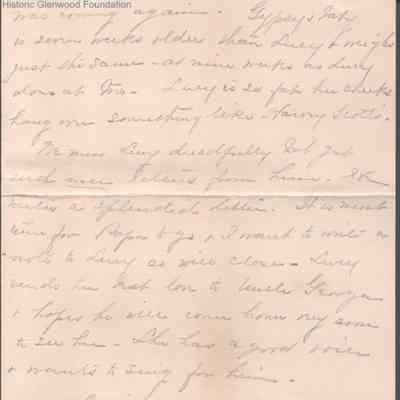 Historic Glenwood Foundation
was coming again. Gypsey's baby
is seven weeks older than Lucy & weighs
just the same - at nine weeks as Lucy
does at two. Lucy is so fat her cheeks
hang over something like Harvey Scott's.
We miss Guy dreadfully but get
such nice letters from him. He
writes a splendid letter. It is most
time for Papa to go & I want to write a
note to Guy so will close. Lucy
sends her best love to Uncle George
& hopes he will come home very soon
to see her - She has a good voice
& wants to sing for him.